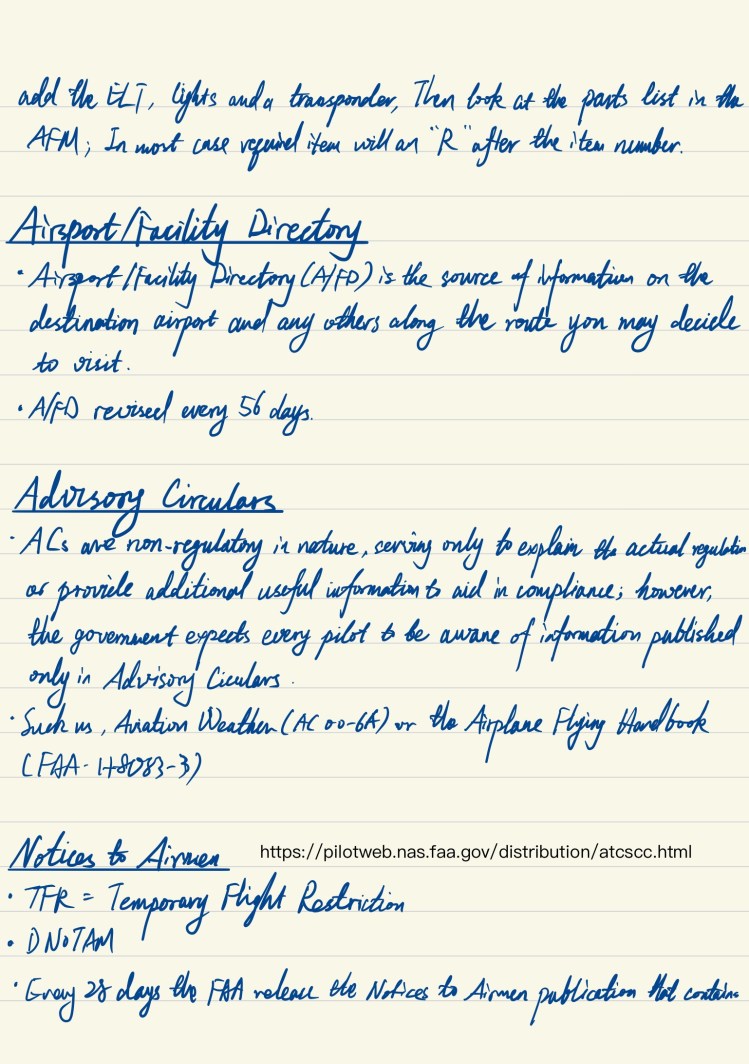 add the ELT, lights and a transponder, Then look at the parts list in the
AFM; In most case required item will an "R" after the item number.
Airport/Facility Directory
· Airport/Facility Directory (A/FD) is the source of information on the
destination airport and any others along the route you may decide
to visit.
· A/FD revised every 56 days.
Advisory Circulars
· ACs are non-regulatory in nature, serving only to explain the actual regulation
or provide additional useful information to aid in compliance; however,
the government expects every pilot to be aware of information published
only in Advisory Ciculars.
· Such us, Aviation Weather (AC 00-6A) or the Airplane Flying Handbook
(FAA-H8083-3)
Notices to Airmen https://pilotweb.nas.faa.gov/distribution/atcscc.html
· TFR = Temporary Flight Restriction
· D NOTAM
· Every 28 days the FAA release the Notices to Airmen publication that contains